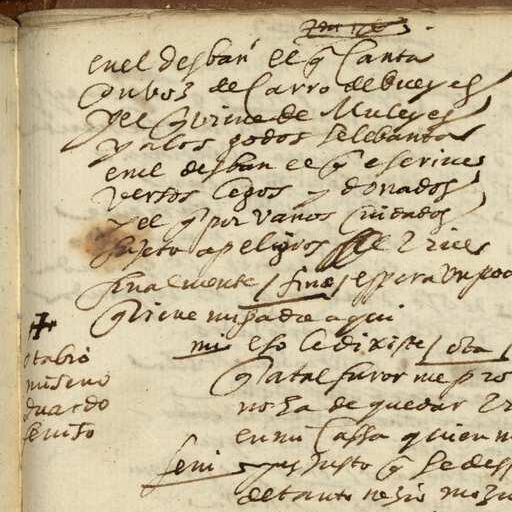 en el desban el q̃ Canta
Con boz de Carro de bueyes
y el q̃ vive de Muleyes
y a los godos le lebanta
en el desban el q̃ escrive
versos legos y donados
y el q̃ por vanos Cuidados
sujeto a peligros
finalmente / fine / espera un poc
q̃ viene mi padre aqui
mi eso le dixiste / ota
q̃ a tal furor me pro
no ha de quedar
en mi Cassa quien
feni es justo q̃ se des
de tanto nezio
otabio
miseno
duardo
feniso